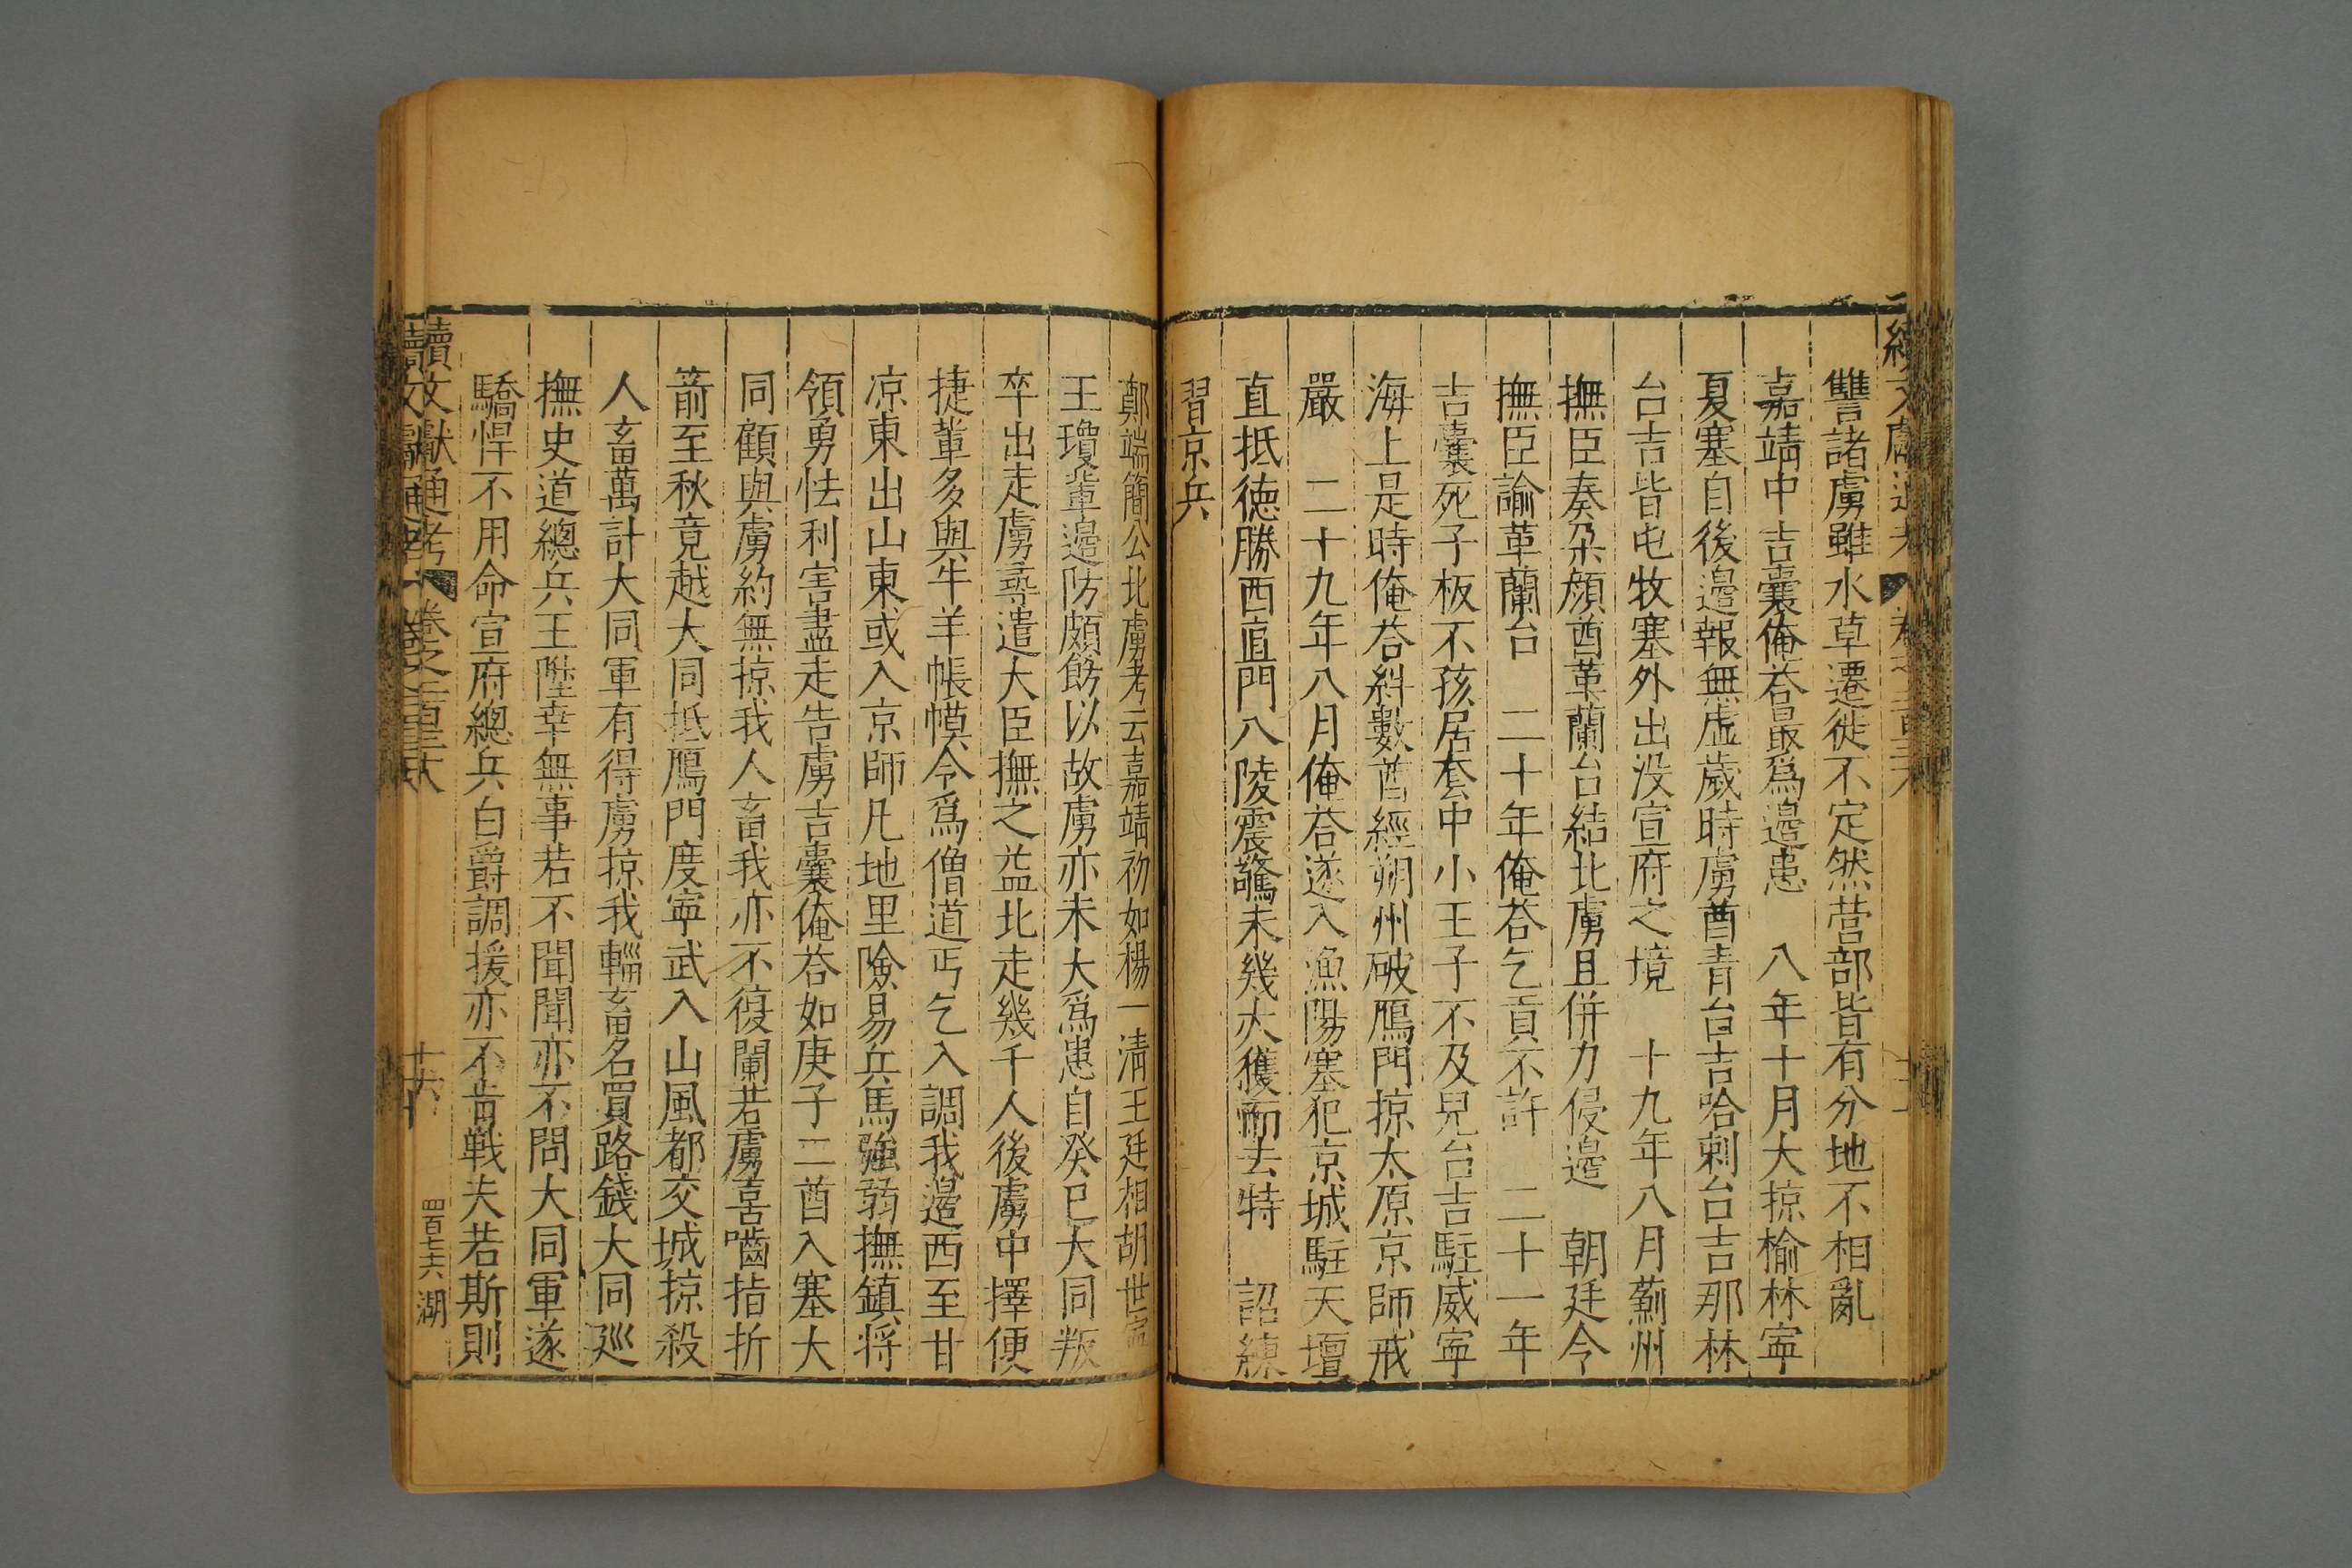 讐諸虜雖水草遷徙不定然营部皆有分地不相亂
嘉靖中吉囊俺荅最爲邉患 八年十月大掠榆林寧
夏塞自後邉報無虚歲時虜酋青台吉哈剌台吉那林
台吉皆屯牧塞外出没宣府之境 十九年八月薊州
撫臣奏朶顔酋革蘭台結北虜且併力侵邉 朝廷令
撫臣諭革蘭台 二十年俺荅乞貢不許 二十一年
吉囊死子板不孩居套中小王子不及兒台吉駐威寧
海上是時俺荅糾數酋經朔州破鴈門掠太原京師戒
嚴 二十九年八月俺荅遂入漁陽塞犯京城駐天壇
直抵徳勝西直門八陵震驚未幾大獲而去特 詔練
習京兵
鄭端簡公北虜考云嘉靖初如楊一清王廷相胡世寧
王瓊軰邉防頗飭以故虜亦未大爲患自癸巳大同叛
卒出走虜尋遣大臣撫之益北走幾千人後虜中擇便
捷軰多與牛羊帳幙令爲僧道丐乞入調我邉西至甘
凉東出山東或入京師凡地里險易兵馬強弱撫鎮将
領勇怯利害盡走告虜吉囊俺荅如庚子二酋入塞大
同顧與虜約無掠我人畜我亦不復闌若虜喜嚙指折
箭至秋竟越大同抵鴈門度寧武入山風都交城掠殺
人畜萬計大同軍有得虜掠我輜畜名買路錢大同廵
撫史道總兵王陞幸無事若不聞聞亦不問大同軍遂
驕悍不用命宣府總兵白爵調援亦不肯戦夫若斯則
續文獻通考 卷之二百三十六
十六
四百七六 湖